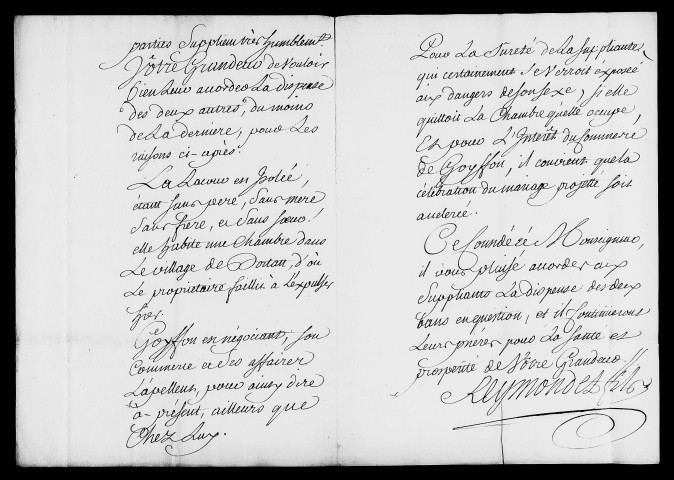 parties supplient très humblemt.
Vôtre Grandeur de vouloir
bien leur accorder La dispense
des deux autres, du moins
de La derniere, pour Les
raisons ci-après.
La Lacour en isolée,
étant sans pere, sans mere
sans frere, et sans soeur!
elle habite une Chambre dans
Le village de Dortan, d'où
Le proprietaire faillit à L'expulser
hier.
Goyffon en négociant, son
Commerce et ses affaires
L'apellent, pour ainsy dire
à-présent, ailleurs que
Chez Lux.
Pour La sureté de La suppliante,
qui certainement se verroit exposée
aux dangers de son sexe, si elle
quittoit La Chambre qu'elle occupe,
Et pour L'Interêt du Commerce
de Goyffon, il convient que la
célébration du mariage projetté soit
accelerée.
Ce considéré Monseigneur,
il vous plaise accorder aux
Suppliants La dispense des deux
bans en question, et il continueront
Leurs prieres pour La santé et
prosperité de Vôtre Grandeur //
Reymondet fils